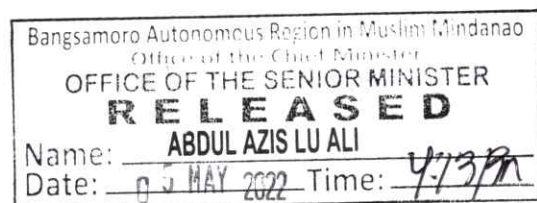 Bangsamoro Autonomous Region in Muslim Mindanao
Office of the Chief Minister
OFFICE OF THE SENIOR MINISTER
RELEASED
Name: ABDUL AZIS LU ALI
Date: MAY 2022 Time: 4:13 PM